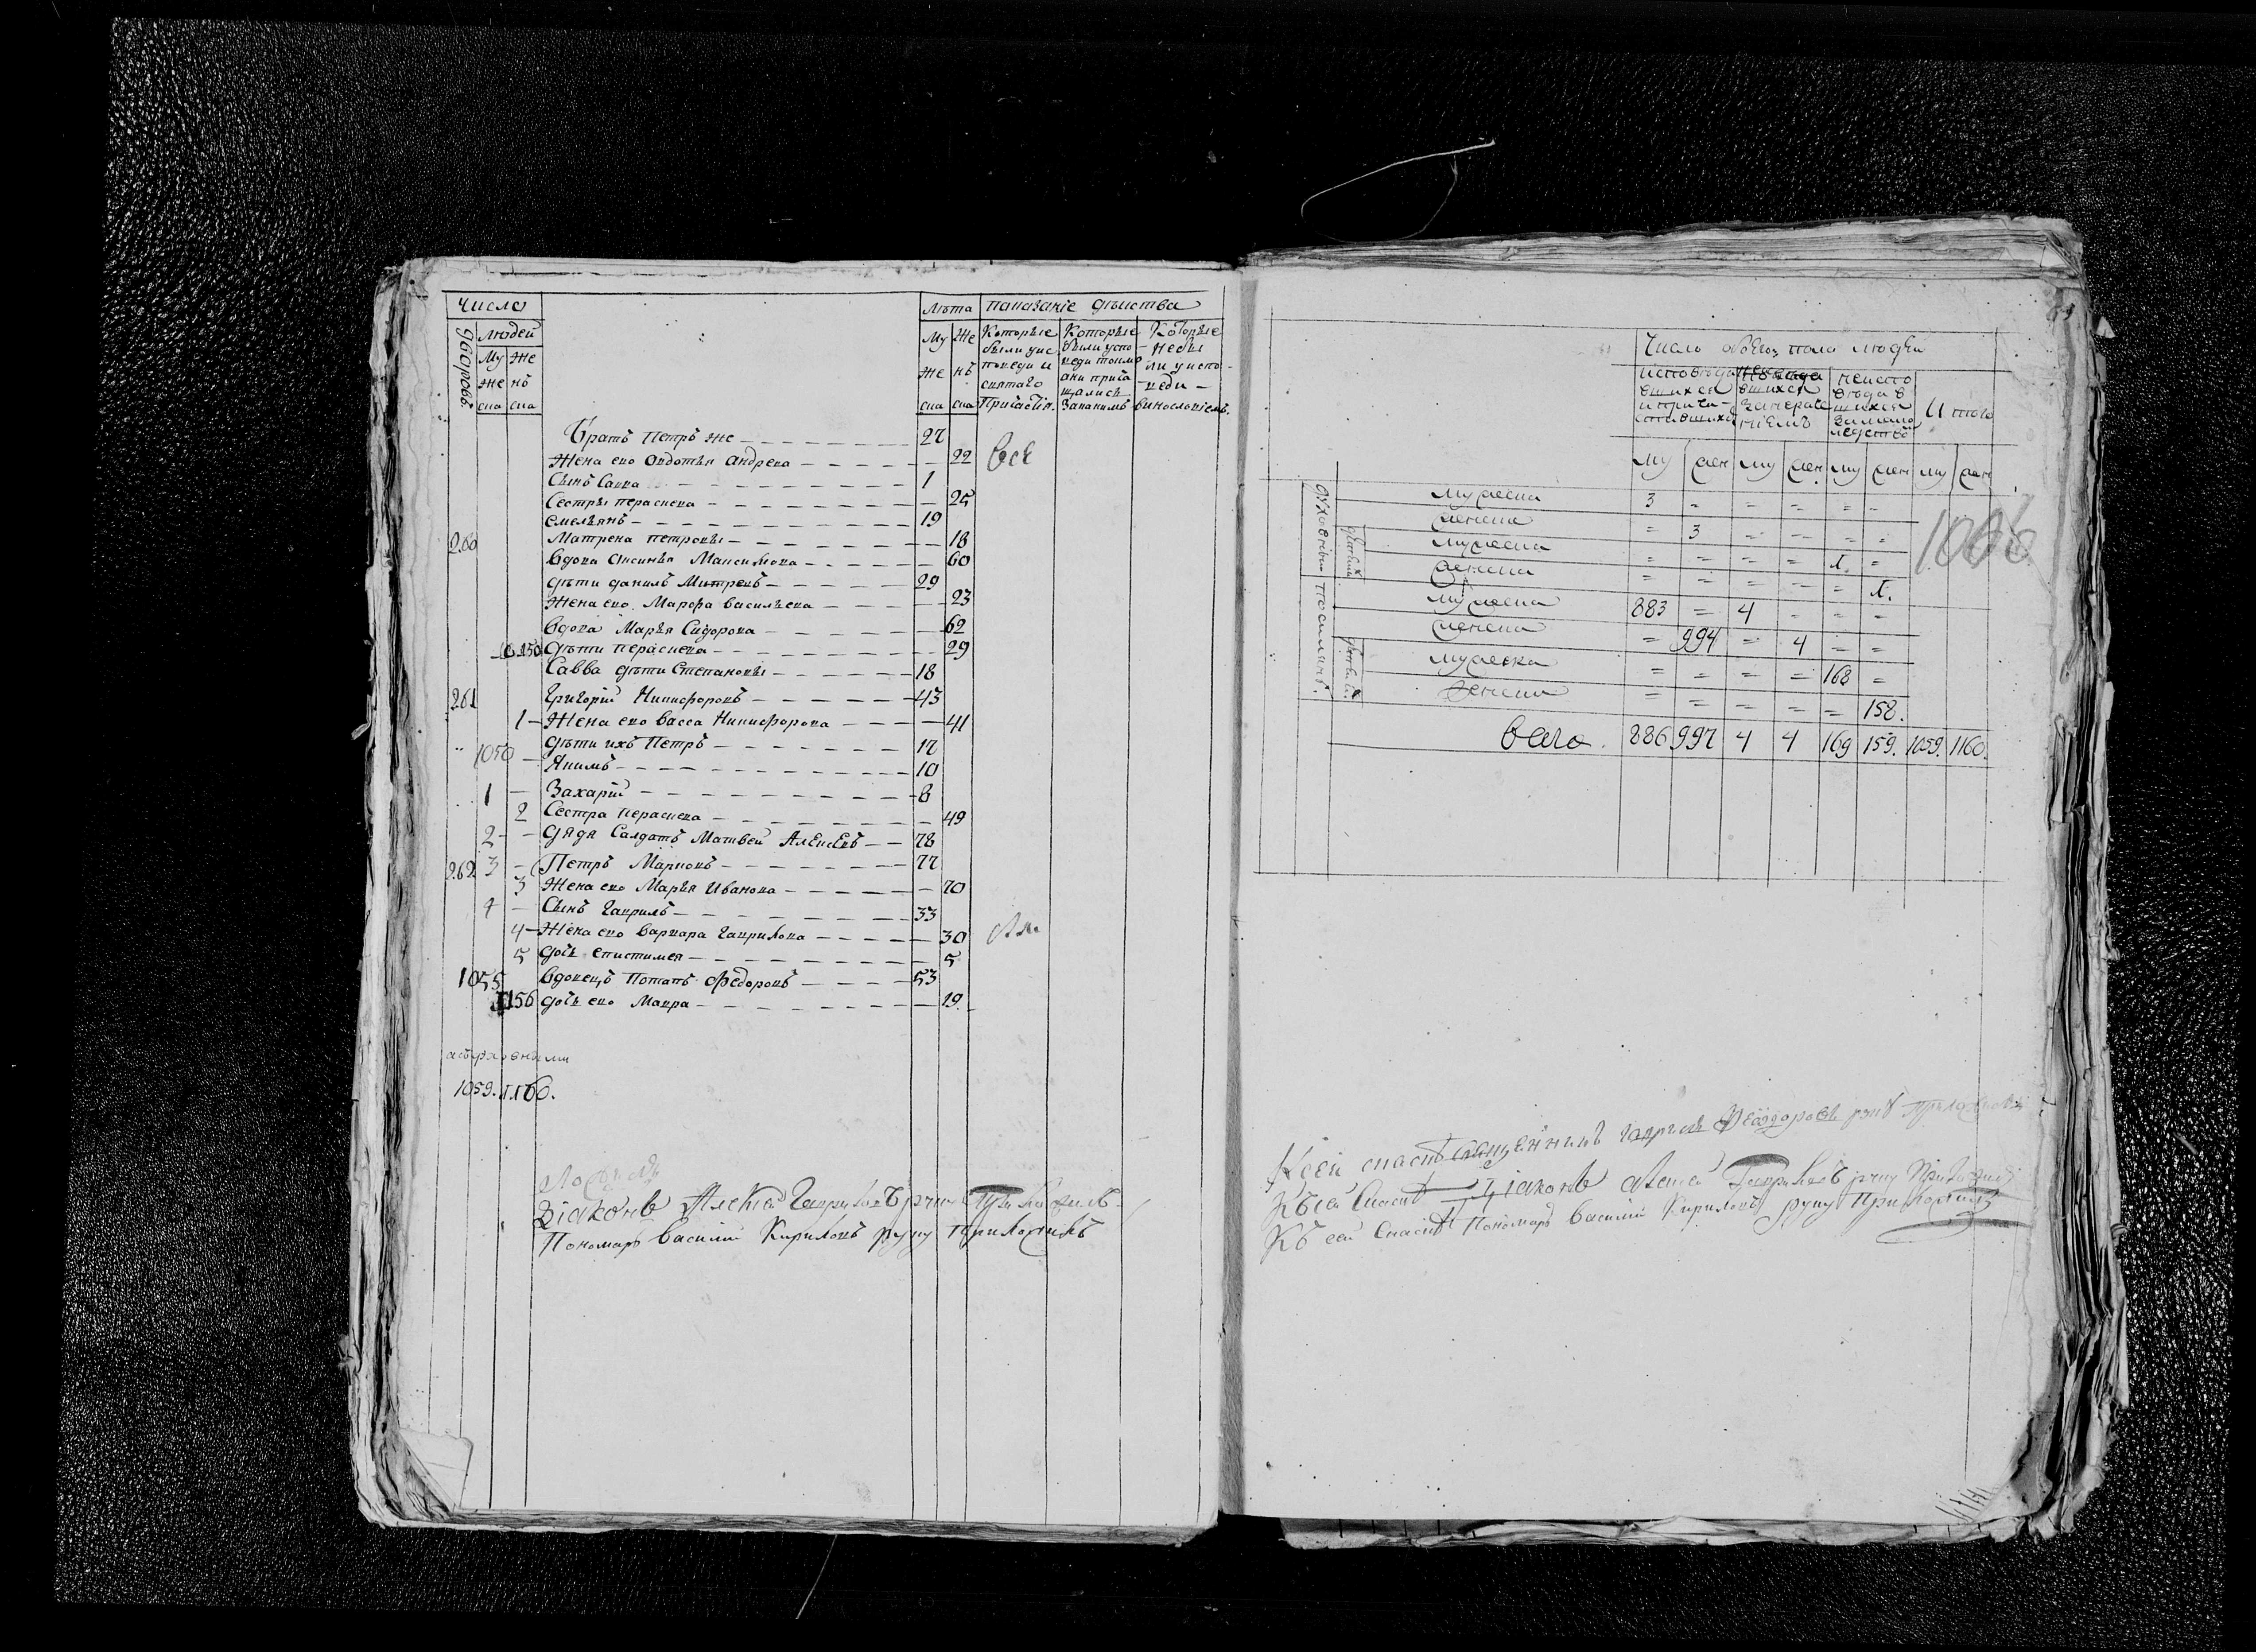 Число
Лѣта
показаніе дѣйства
дворовъ
людей
Му
же
ска
Же
нъ
ска
Му
же
ска
Же
нъ
ска
Которые
были уис
поведи и
святаго
Причастія.
Которые
были успо
веди токмо
они прича
щались
Заканимъ
Которые
небы
ли успо
веди
виносло́віемъ
Братъ Петръ же 27
Жена ево Овдотья Андрева 22 Все
Сынъ Савва 1
Сестры Пераскева 25
Емельянъ 19
260 Матрена Петровы 18
Вдова Аксинья Максимова 60
дѣти Данилъ Митревъ 29
Жена ево Марфа Васильева 23
Вдова Марья Сидорова 62
1150 дѣти Пераскева 29
Савва дѣти Степановы 18
261 Григорій Никифоровъ 43
1 Жена ево Васса Никифорова 41
1050 дѣти ихъ Петръ 17
Якимъ 10
1 Захарій 8
2 Сестра Пераскева 49
2 Дядя Салдатъ Матвей Алексѣевъ 78
262 3 Петръ Марковъ 77
3 Жена ево Марья Иванова 70
4 Сынъ Гаврилъ 33
4 Жена ево Варвара Гаврилова 30
5 дочь Епистимея 5
1055 Вдовецъ Потапъ Федоровъ 53
1156 дочь ево Мавра 19
1059. 1160.
Діаконъ Алексей Гавриловъ руку приложилъ
Пономарь Василий Кириловъ руку приложилъ
Число обоего пола людей
исповѣда
вшихся
и прича
стившихся
вшихся
неиспо
вѣдав
шихся
за мало
летство
Итого
му жен му жен му жен му жен
духовныи
мужеска 3 = = = = =
женска = 3 = = = =
мужеска = = = = 1. =
женска = = = = = 1.
1006
мужеска 883 = 4 = = =
женска = 994 = 4 = =
мужеска = = = = 168 =
женска = = = = = 158.
Всего. 886 997 4 4 169 159. 1059. 1160.
Ксей священникъ Гаврилъ Феодоровъ руку приложилъ
Къ сей Діаконъ Алексей Гавриловъ руку приложилъ
Къ сей Пономарь Василий Кириловъ руку Приложилъ